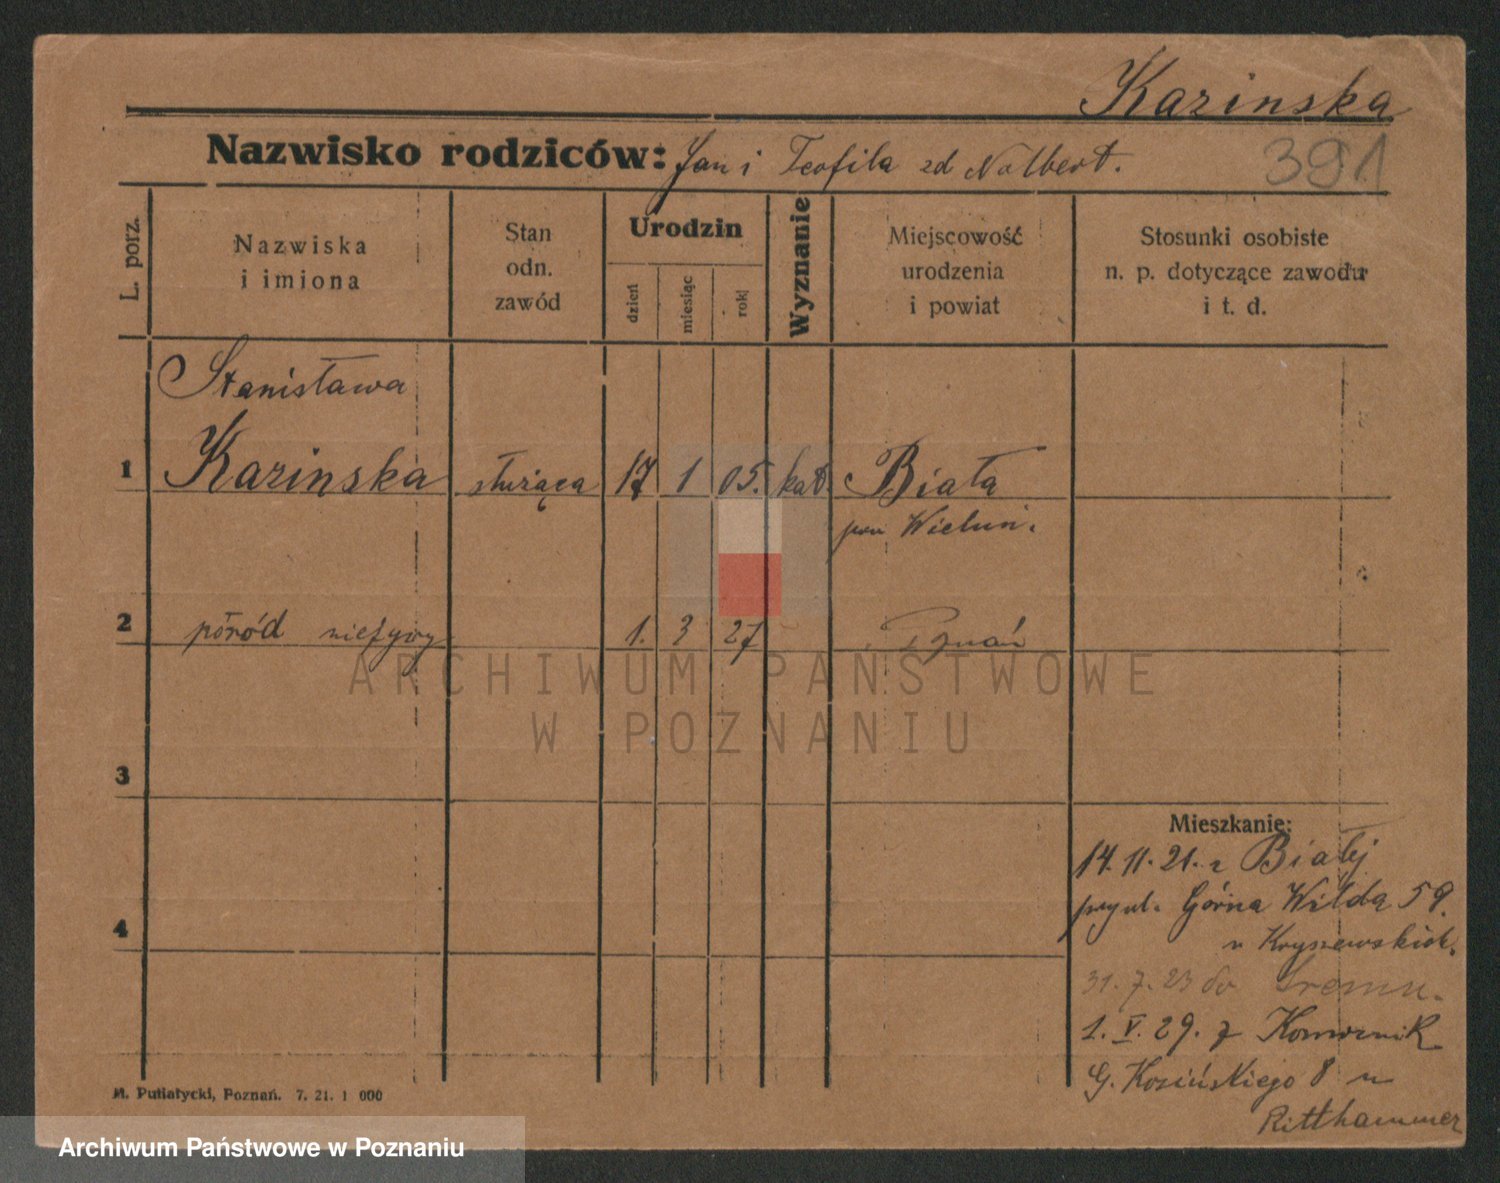 Kazinska
Nazwisko rodziców: Jan i Teofila zd Nalbert.
391
L. porz.
Nazwiska
i imiona
Stan
odn.
zawód
Urodzin
dzień
miesiąc
rok
Wyznanie
Miejscowość
urodzenia
i powiat
Stosunki osobiste
n. p. dotyczące zawodu
i t. d.
Stanisława
1 Kazinska służąca 17 1 05. kat. Biała
pow Wieluń.
2 poród nieżywy 1. 3 27 Poznań
ARCHIWUM PAŃSTWOWE
W POZNANIU
3
Mieszkanie:
14. 11. 21. z Białej
przy ul. Górna Wilda 59.
u Kryszewskich.
4
31. 7. 23 do Śremu.
1. V. 29. z Komornik
G. Kosińskiego 8 u
Ritthammer
M. Putiatycki, Poznań. 7. 21. 1 000
Archiwum Państwowe w Poznaniu